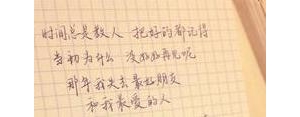 时间总是教人 把好的都记得
当初为什么 没好好再见呢
那年我失去最好朋友
和我最爱的人